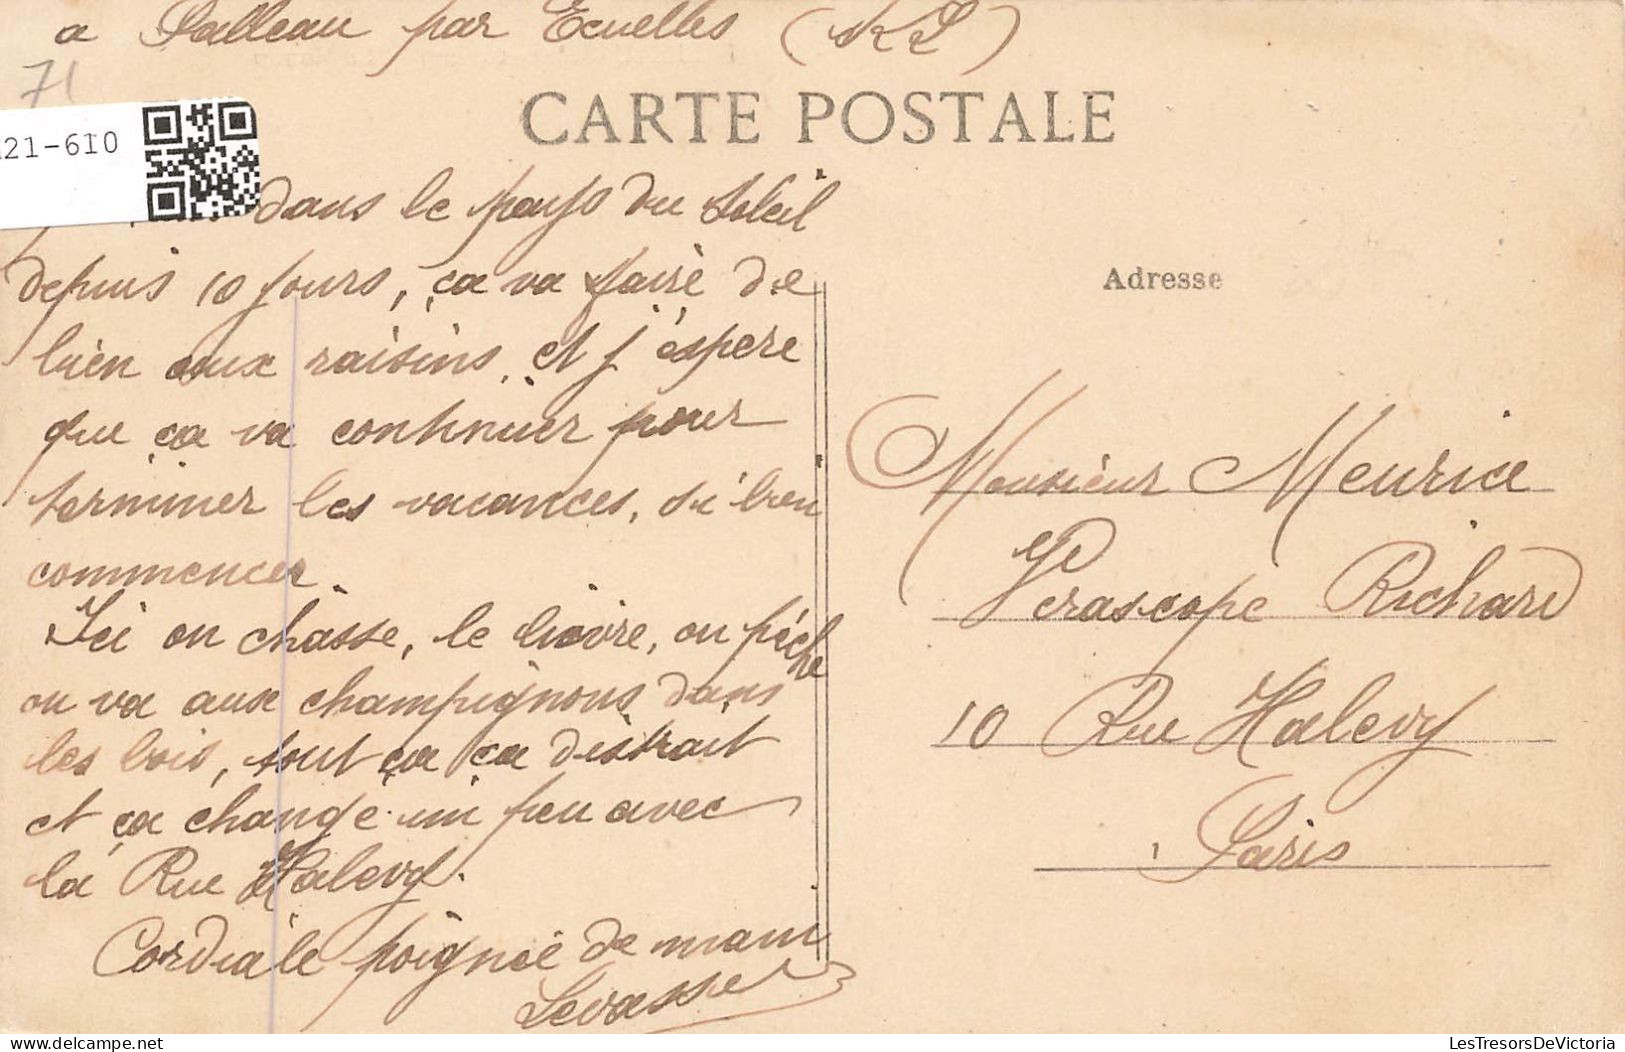 a Palleau par Ecuelles (S & L)
71
CARTE POSTALE
21-610
dans le pays du Soleil
depuis 10 jours, ça va faire de
bien aux raisins, et j'éspere
que ça va continuer pour
terminer les vacances, si bien
commencer.
Ici on chasse, le lièvre, on pêche
on va aux champignons dans
les bois, tout ça ça distrait
et ça change un peu avec
la Rue Halevy.
Cordiale poignée de main
Levasse
Adresse
Monsieur Meurice
Verascope Richard
10 Rue Halevy
Paris
LesTresorsDeVictoria
delcampe.net